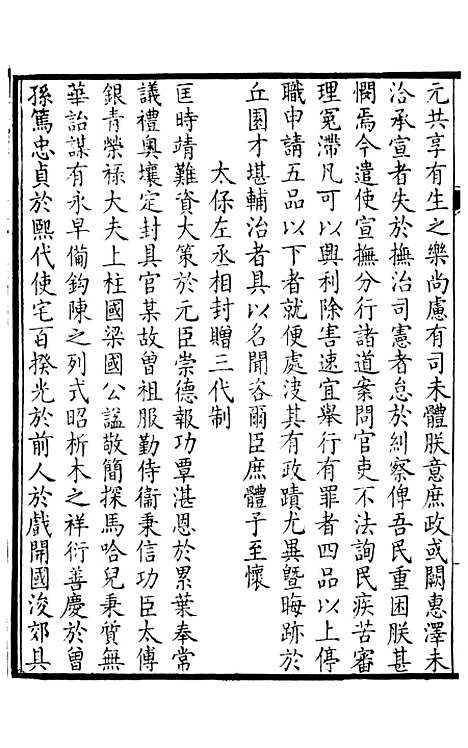 元共享有生之樂尚慮有司未體朕意庶政或闕惠澤未
洽承宣者失於撫治司憲者怠於糾察俾吾民重困朕甚
憫焉今遣使宣撫分行諸道案問官吏不法詢民疾苦審
理冤滯凡可以興利除害速宜舉行有罪者四品以上停
職申請五品以下者就便處决其有政蹟尤異暨晦跡於
丘園才堪輔治者具以名聞咨爾臣庶體予至懷
太保左丞相封贈三代制
匡時靖難資大策於元臣崇德報功覃湛恩於累葉奉常
議禮奧壤定封具官某故曾祖服勤侍衞秉信功臣太傅
銀青榮祿大夫上柱國梁國公謚敬簡探馬哈兒秉質無
華詒謀有永早備鈎陳之列式昭析木之祥衍善慶於曾
孫篤忠貞於熙代使宅百揆光於前人於戲開國浚郊具